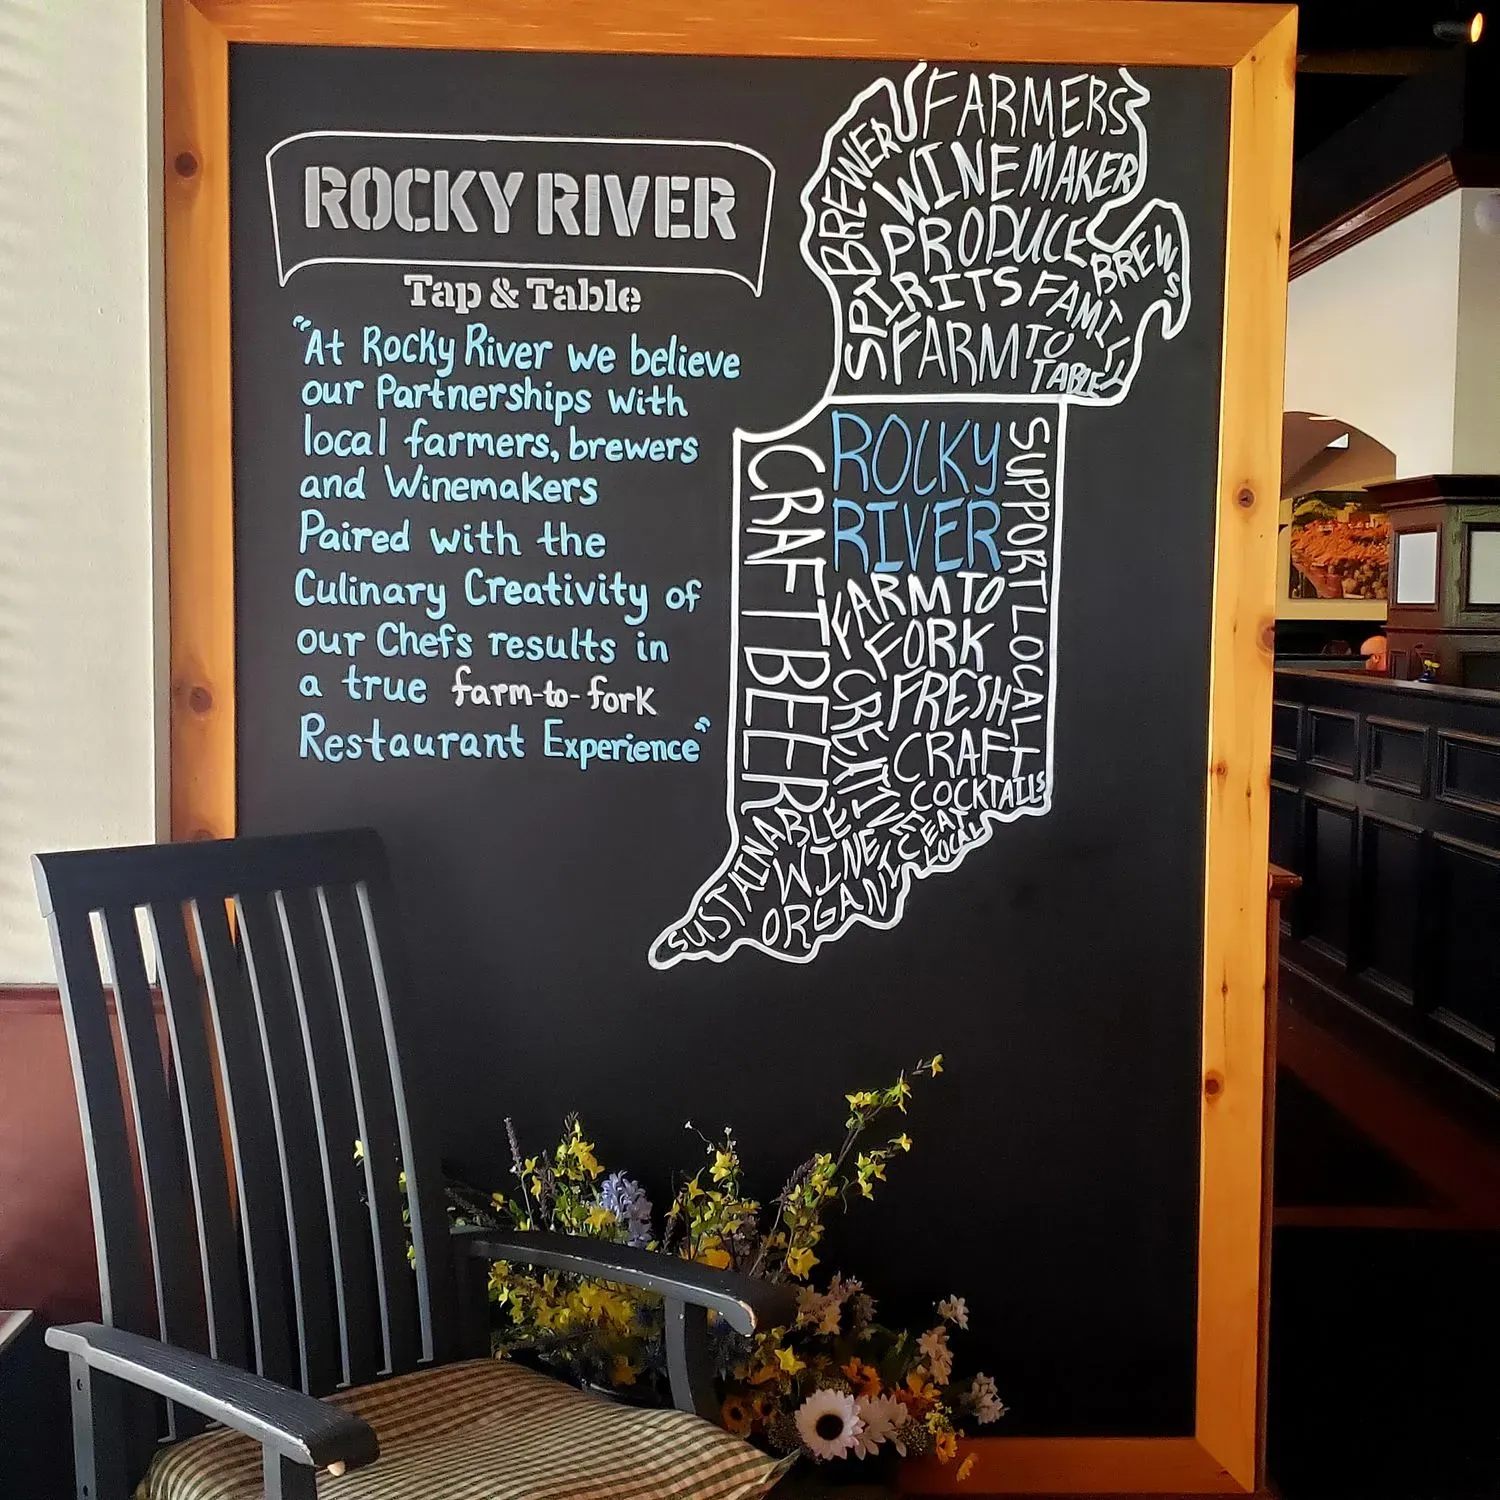 ROCKY RIVER
Tap & Table
"At Rocky River we believe
our Partnerships with
local farmers, brewers
and Winemakers
Paired with the
Culinary Creativity of
our Chefs results in
a true farm-to-fork
Restaurant Experience"
FARMERS
BREWER
WINEMAKER
PRODUCE
BREWS
SPIRITS
FAMILY
FARM TO
TABLE
ROCKY
RIVER
SUPPORT LOCAL
CRAFT BEER
FARM TO
FORK
FRESH
CREATIVE
CRAFT
COCKTAILS
EAT
LOCAL
SUSTAINABLE
WINE
ORGANIC